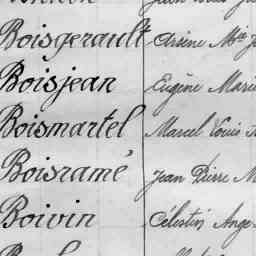 Boisgerault Arsène Mie
Boisjean Eugène Marie
Boismartel Marcel Louis
Boisramé Jean Pierre M
Boivin Célestin Ange